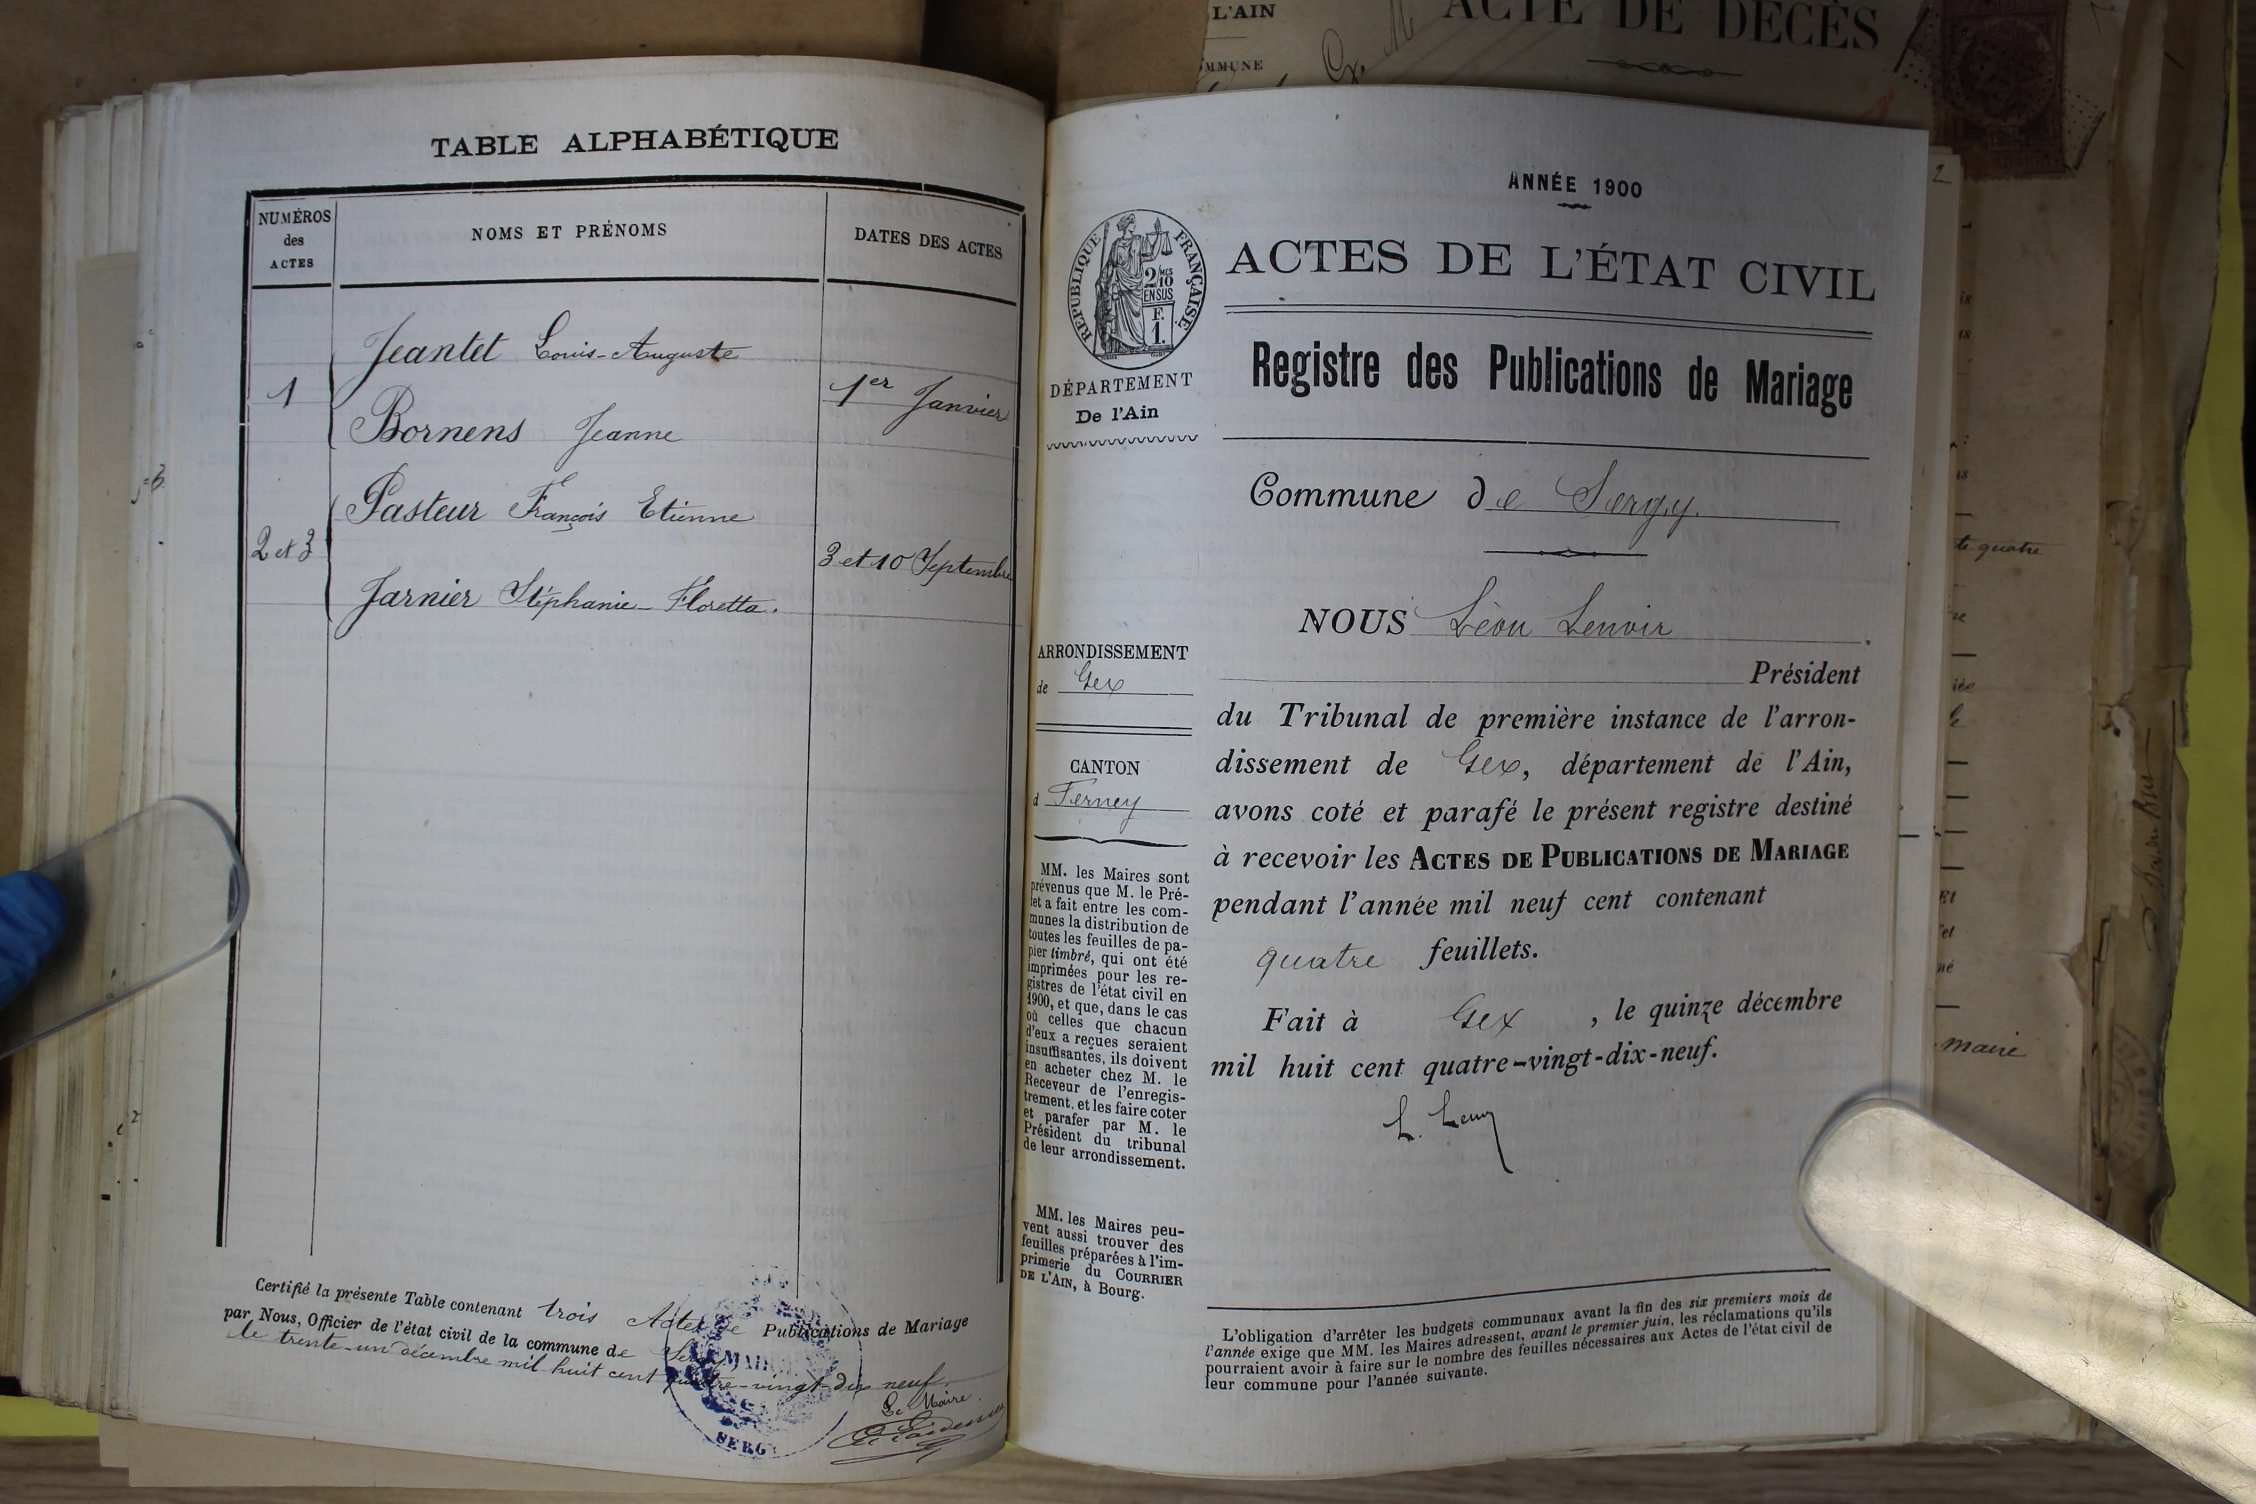 TABLE ALPHABÉTIQUE
NUMÉROS
des
ACTES
NOMS ET PRÉNOMS
DATES DES ACTES
Jeantet Louis-Auguste
1
1er Janvier
Bornens Jeanne
Pasteur François Etienne
2 et 3
3 et 10 Septembre
Jarnier Stéphanie-Floretta.
Certifié la présente Table contenant trois Actes de Publications de Mariage
par Nous, Officier de l'état civil de la commune de Sergy
le trente-un décembre mil huit cent quatre-vingt-dix neuf.
Le Maire
MAIRIE
SERGY
L'AIN
ACTE DE DÉCÈS
COMMUNE
ANNÉE 1900
RÉPUBLIQUE FRANÇAISE
2/10
EN SUS
F.
1.
ACTES DE L'ÉTAT CIVIL
Registre des Publications de Mariage
DÉPARTEMENT
De l'Ain
Commune de Sergy.
NOUS Léon Lenoir
Président
ARRONDISSEMENT
de Gex
du Tribunal de première instance de l'arron-
dissement de Gex, département de l'Ain,
CANTON
d Ferney
avons coté et parafé le présent registre destiné
à recevoir les ACTES DE PUBLICATIONS DE MARIAGE
pendant l'année mil neuf cent contenant
quatre feuillets.
Fait à Gex, le quinze décembre
mil huit cent quatre-vingt-dix-neuf.
MM. les Maires sont
prévenus que M. le Pré-
fet a fait entre les com-
munes la distribution de
toutes les feuilles de pa-
pier timbré, qui ont été
imprimées pour les re-
gistres de l'état civil en
1900, et que, dans le cas
où celles que chacun
d'eux a reçues seraient
insuffisantes, ils doivent
en acheter chez M. le
Receveur de l'enregis-
trement, et les faire coter
et parafer par M. le
Président du tribunal
de leur arrondissement.
MM. les Maires peu-
vent aussi trouver des
feuilles préparées à l'im-
primerie du COURRIER
DE L'AIN, à Bourg.
L'obligation d'arrêter les budgets communaux avant la fin des six premiers mois de
l'année exige que MM. les Maires adressent, avant le premier juin, les réclamations qu'ils
pourraient avoir à faire sur le nombre des feuilles nécessaires aux Actes de l'état civil de
leur commune pour l'année suivante.
2
te quatre
maire